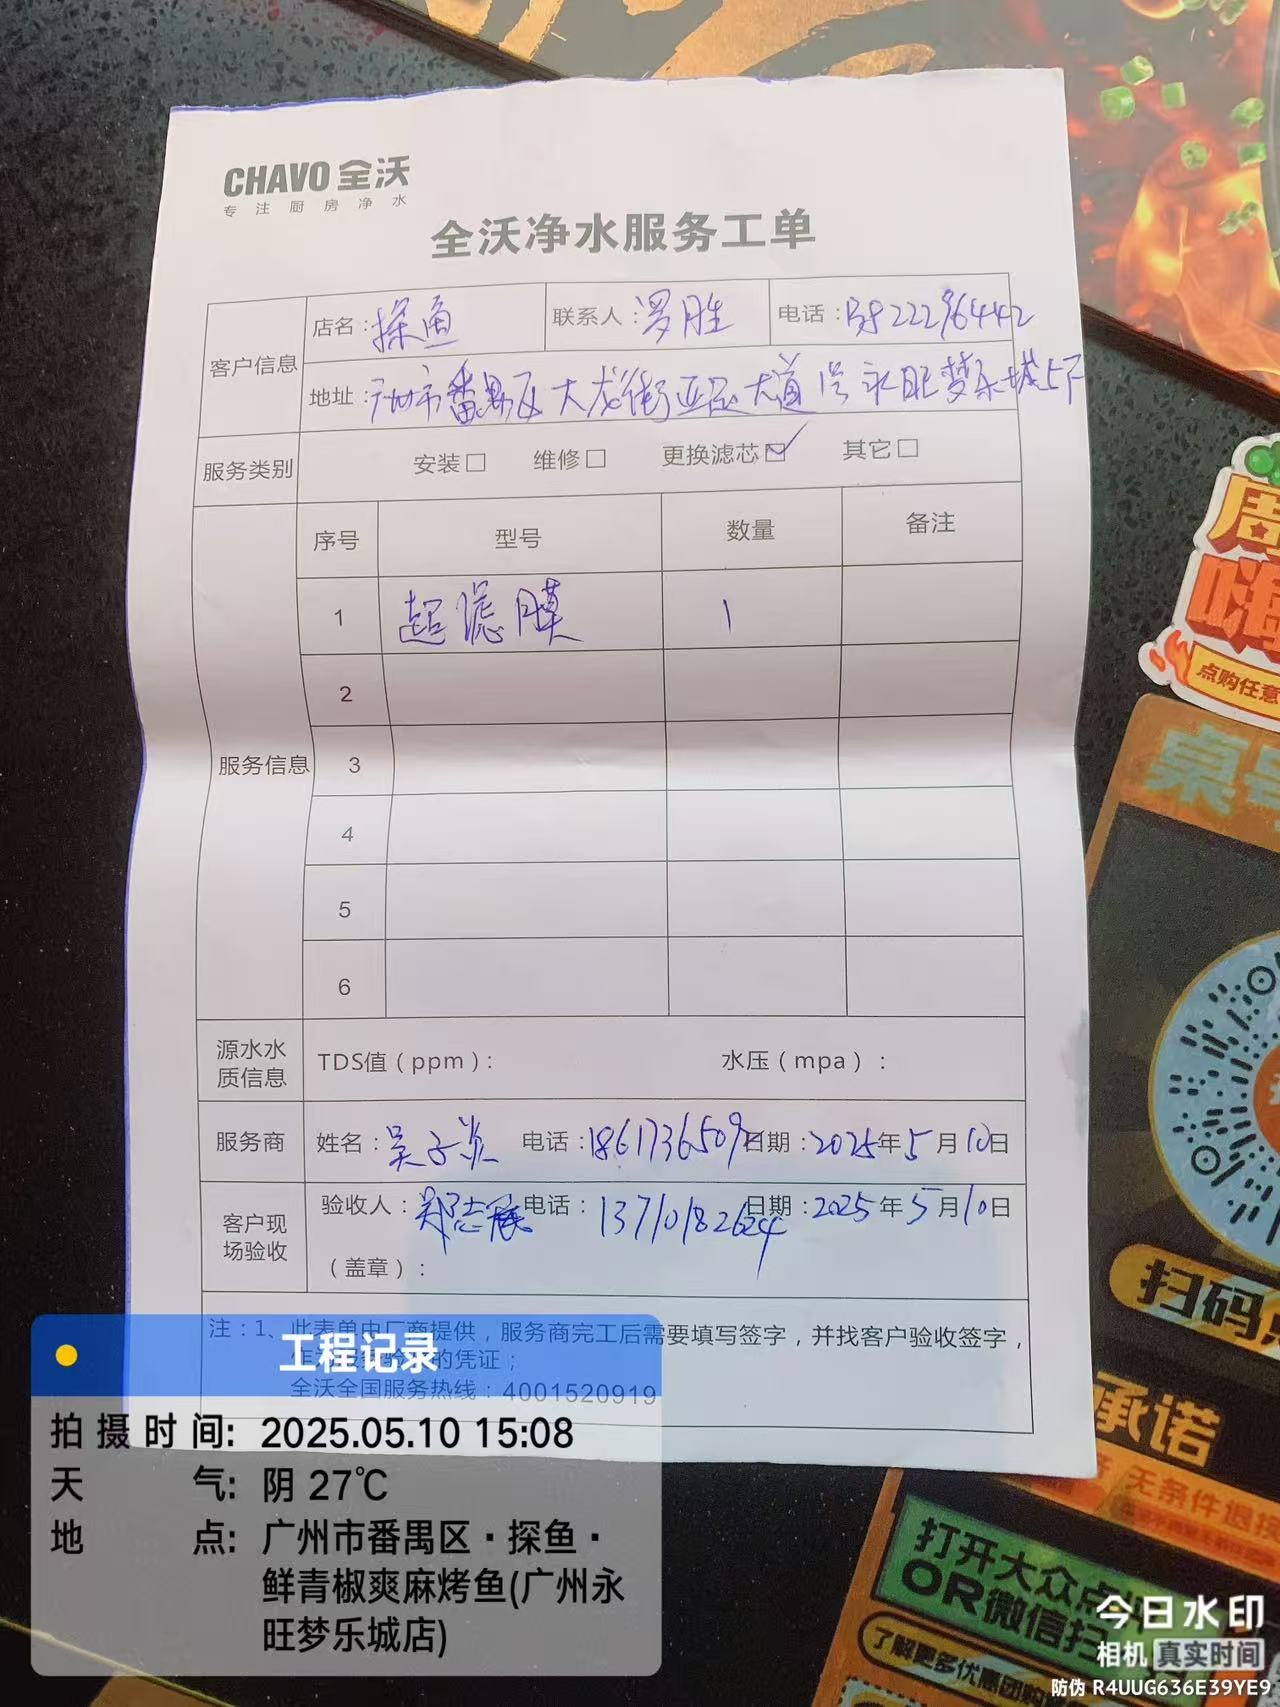 CHAVO 全沃
专注厨房净水
全沃净水服务工单
客户信息
店名：探鱼 联系人：罗胜 电话：
地址：广州市番禺区大龙街亚运大道 号永旺梦乐城
服务类别 安装□ 维修□ 更换滤芯☑ 其它□
服务信息
序号 型号 数量 备注
1 超滤膜 1
2
3
4
5
6
源水水质信息 TDS值（ppm）： 水压（mpa）：
服务商 姓名：吴子炎 电话： 日期：2025年5月10日
客户现场验收 验收人：郑志展 电话：13710182624 日期：2025年5月10日
（盖章）：
注：1、此表单由厂商提供，服务商完工后需要填写签字，并找客户验收签字，
的凭证；
全沃全国服务热线：4001520919
工程记录
拍摄时间: 2025.05.10 15:08
天气: 阴 27℃
地点: 广州市番禺区·探鱼·
鲜青椒爽麻烤鱼(广州永
旺梦乐城店)
点购任意
桌号
扫码
承诺
无条件退
打开大众点
OR微信扫
了解更多优惠团购
今日水印
相机 真实时间
防伪 R4UUG636E39YE9